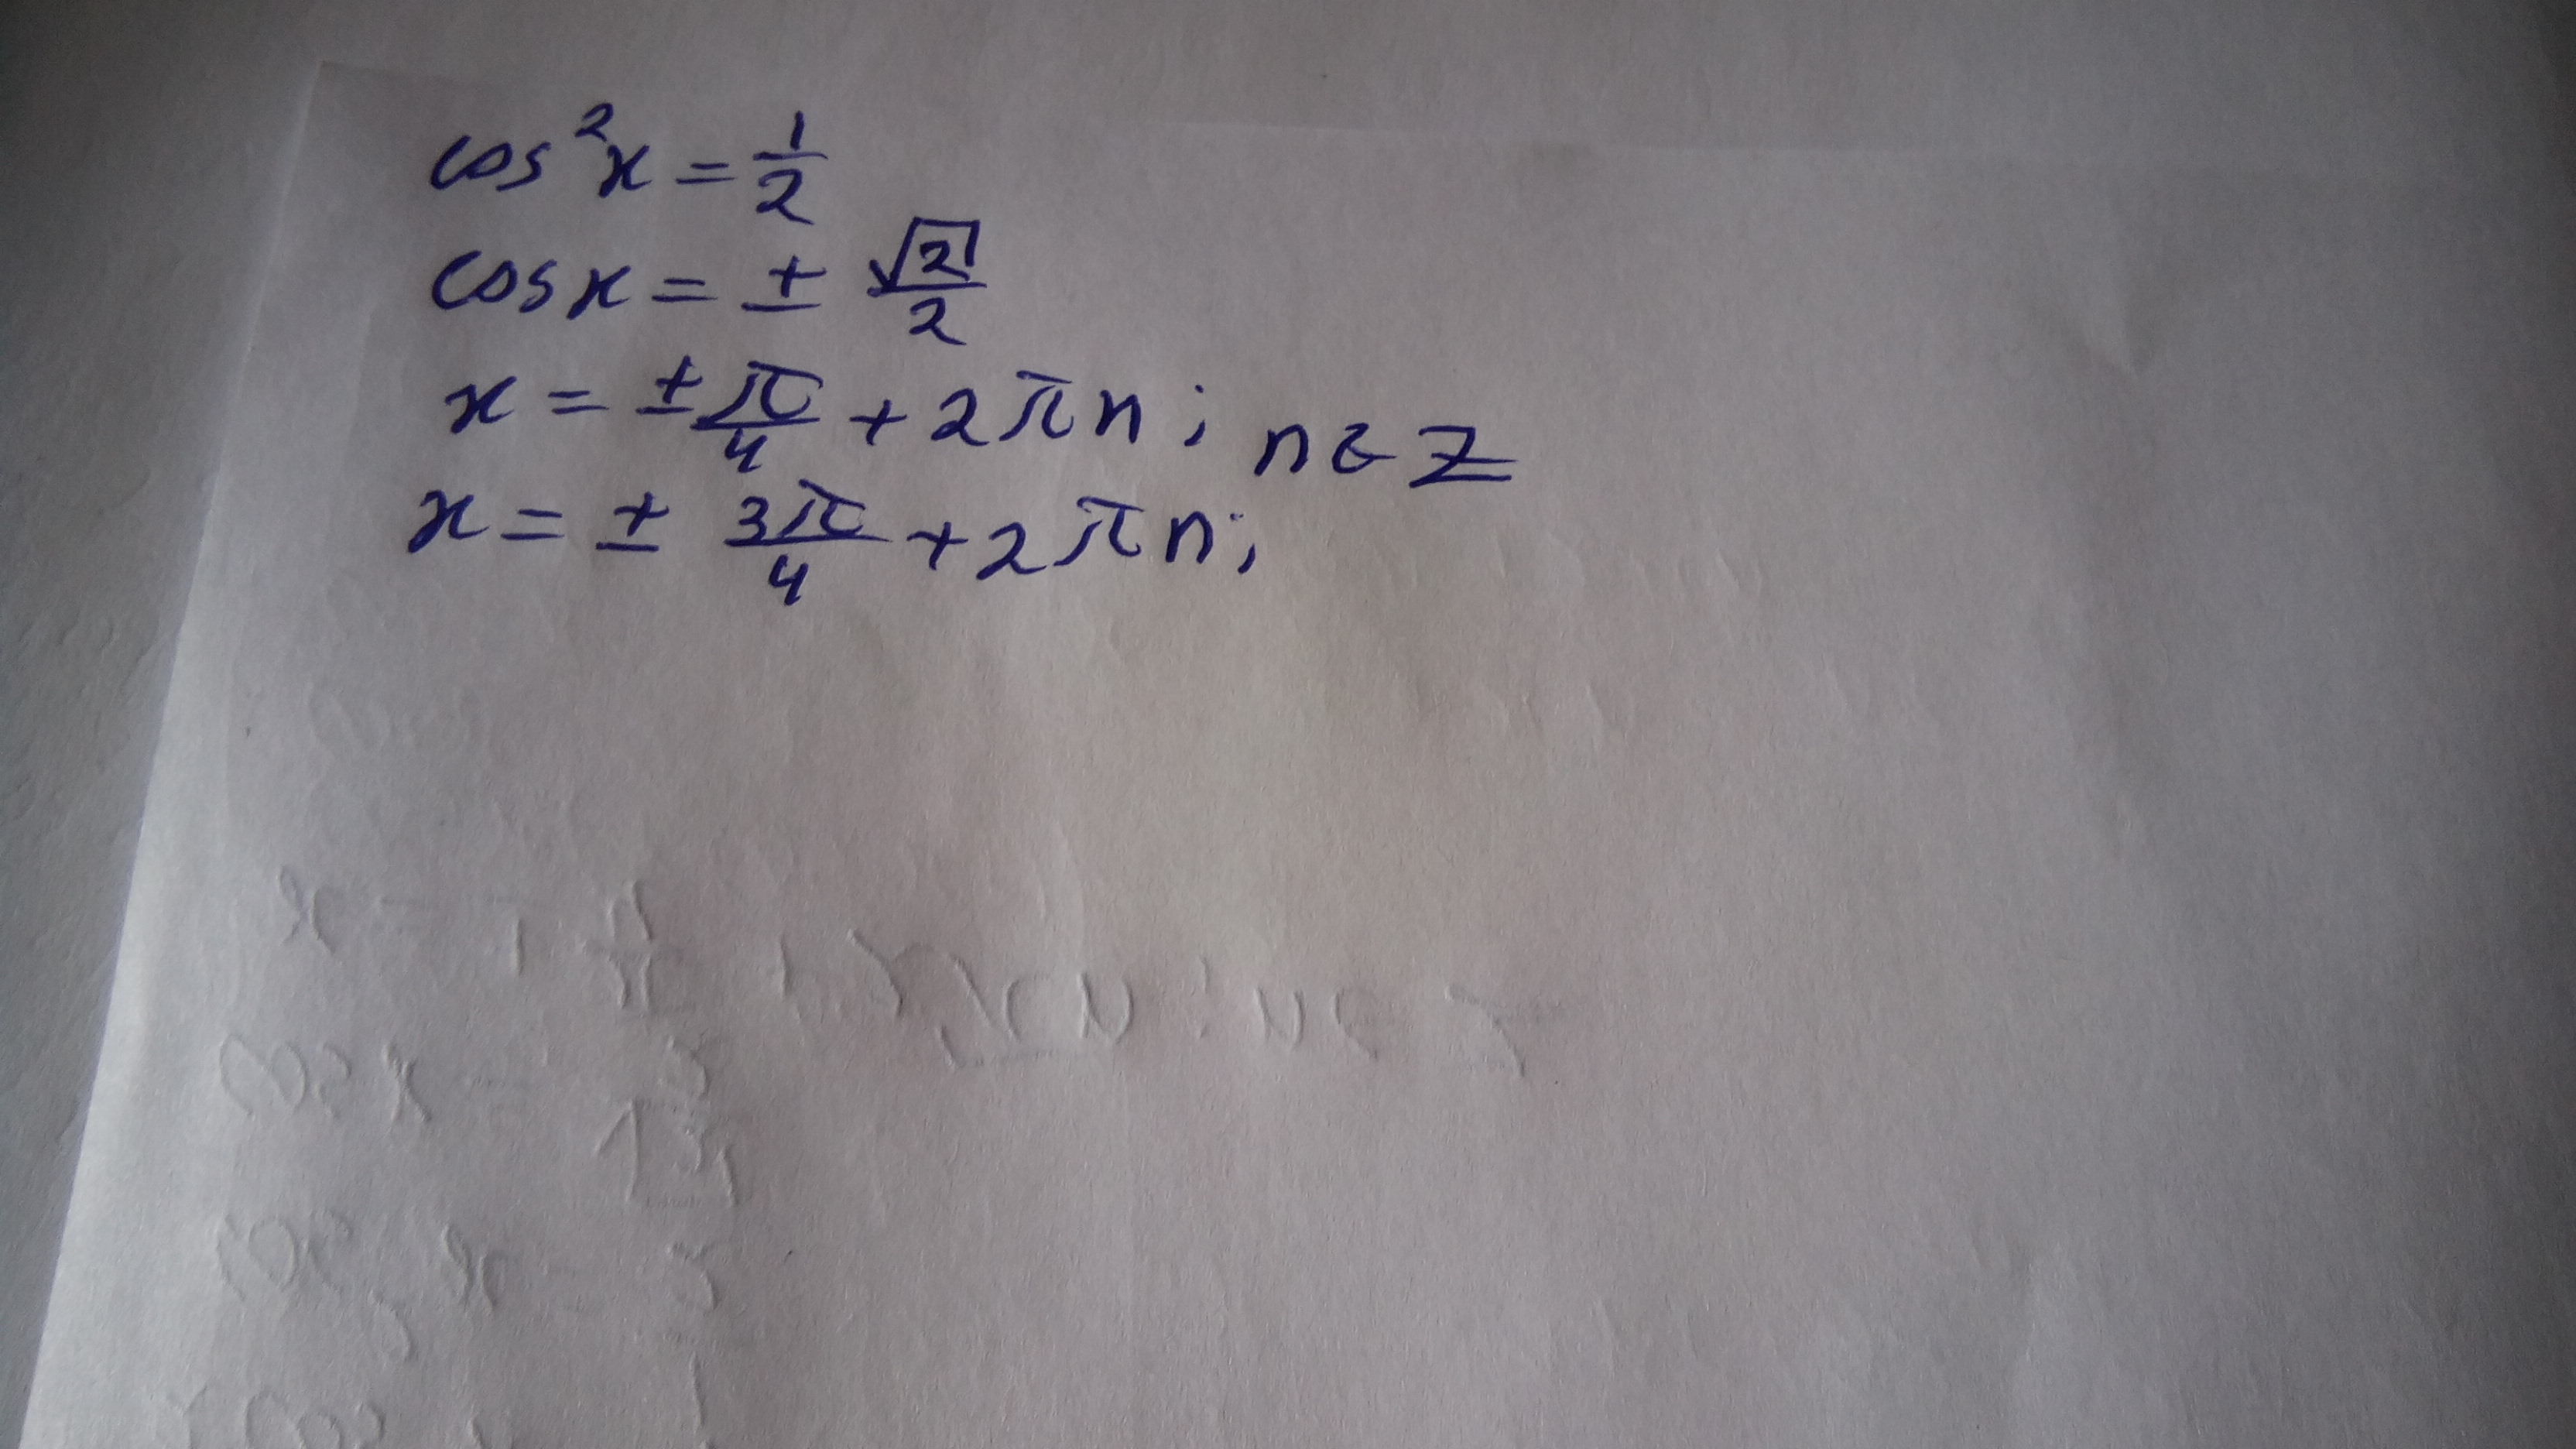 cos²x = 1/2
cosx = ± √2/2
x = ± π/4 + 2πn ; n∈Z
x = ± 3π/4 + 2πn;